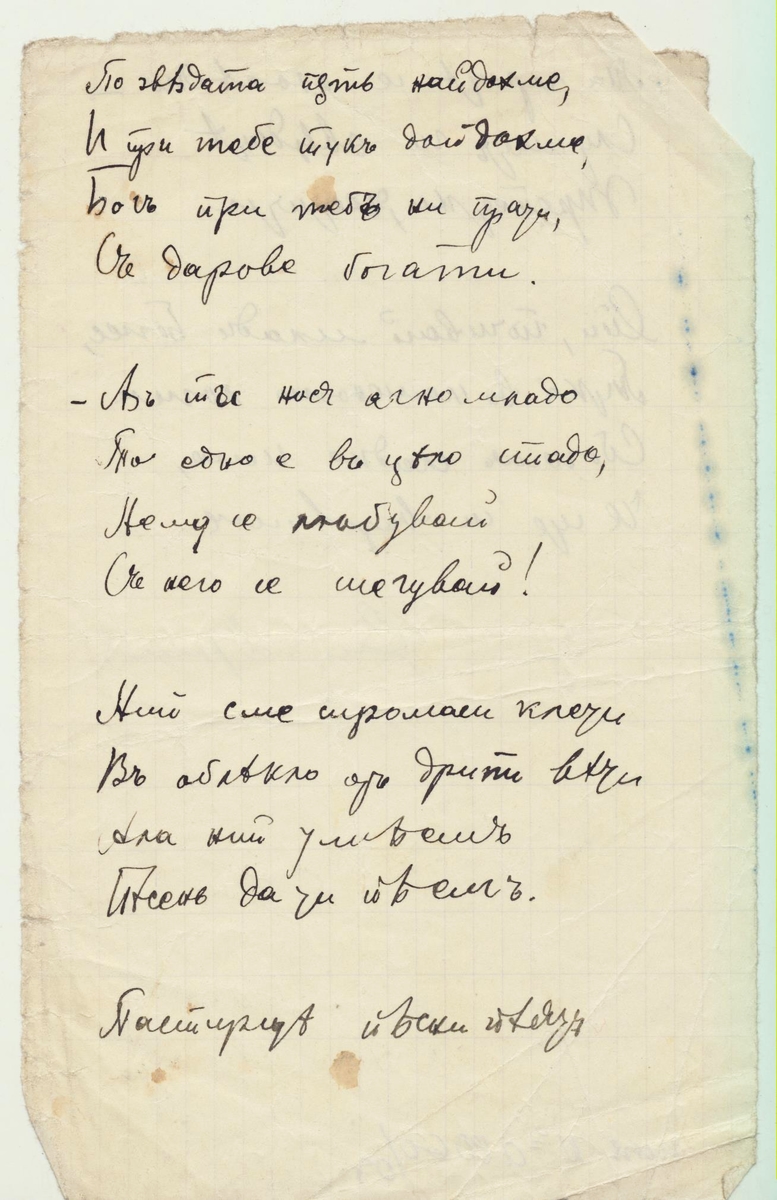 По звѣздата пѫть найдохме,
И при тебе тукъ дойдохме,
Богъ при тебъ ни прати,
Съ дарове богати.
- Азъ тъе нося агно младо
То едно е въ цѣло стадо,
Нему се любувай
Съ него се шегувай!
Ний сме сиромаси клети
Въ облѣкло отъ дрипи вѣти
Ала ний умѣемъ
Пѣсень да ти пѣемъ.
Пастирцитѣ пѣсни пѣятъ